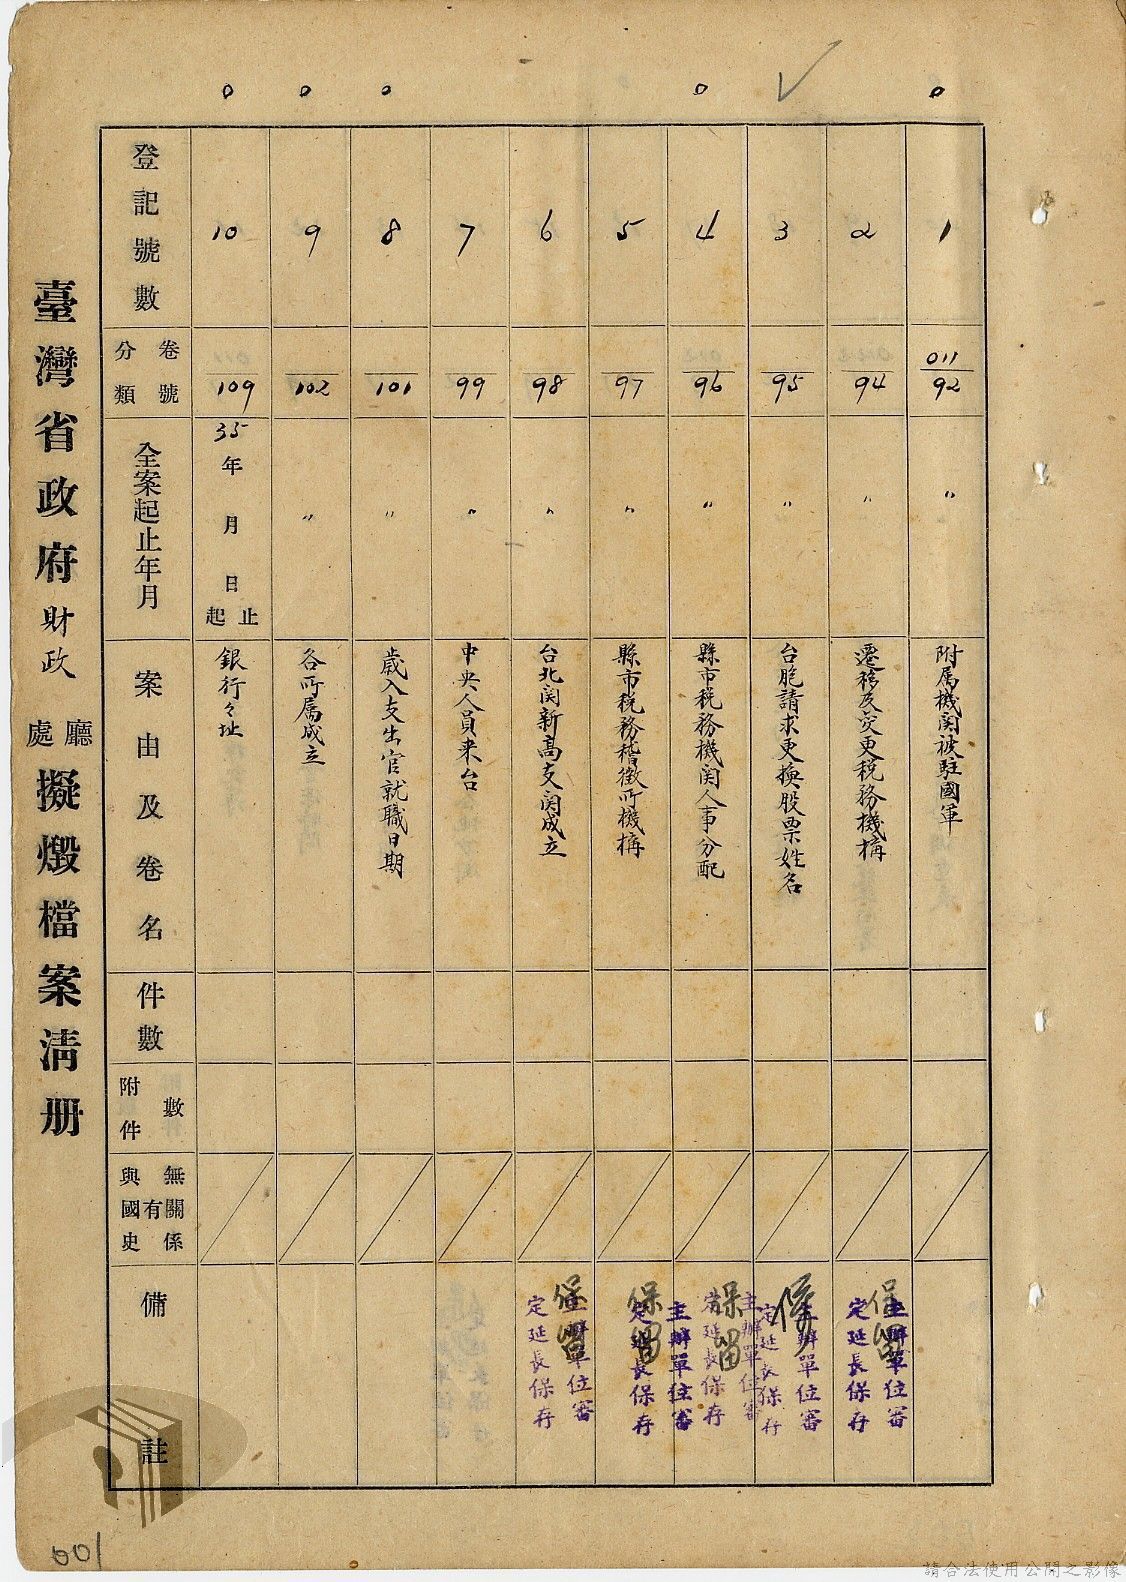 登記號數
卷號
分類
全案起止年月
案由及卷名
件數
附件
數
與國史
有
無關係
備註
1
011
92
〃
附属機関被駐國軍
2
94
〃
遷移及变更税務機構
主辦單位審
定延長保存
保留
3
95
〃
台胞請求更換股票姓名
主辦單位審
定延長保存
4
96
〃
縣市税務機関人事分配
主辦單位審
定延長保存
保留
5
97
〃
縣市税務稽徵所機構
主辦單位審
定延長保存
保留
6
98
〃
台北関新高支関成立
主辦單位審
定延長保存
保留
7
99
〃
中央人員来台
8
101
〃
歲入支出官就職日期
9
102
〃
各所属成立
10
109
35年 月 日
止
起
銀行々址
臺灣省政府財政
廳
處
擬燬檔案淸册
001
請合法使用公開之影像